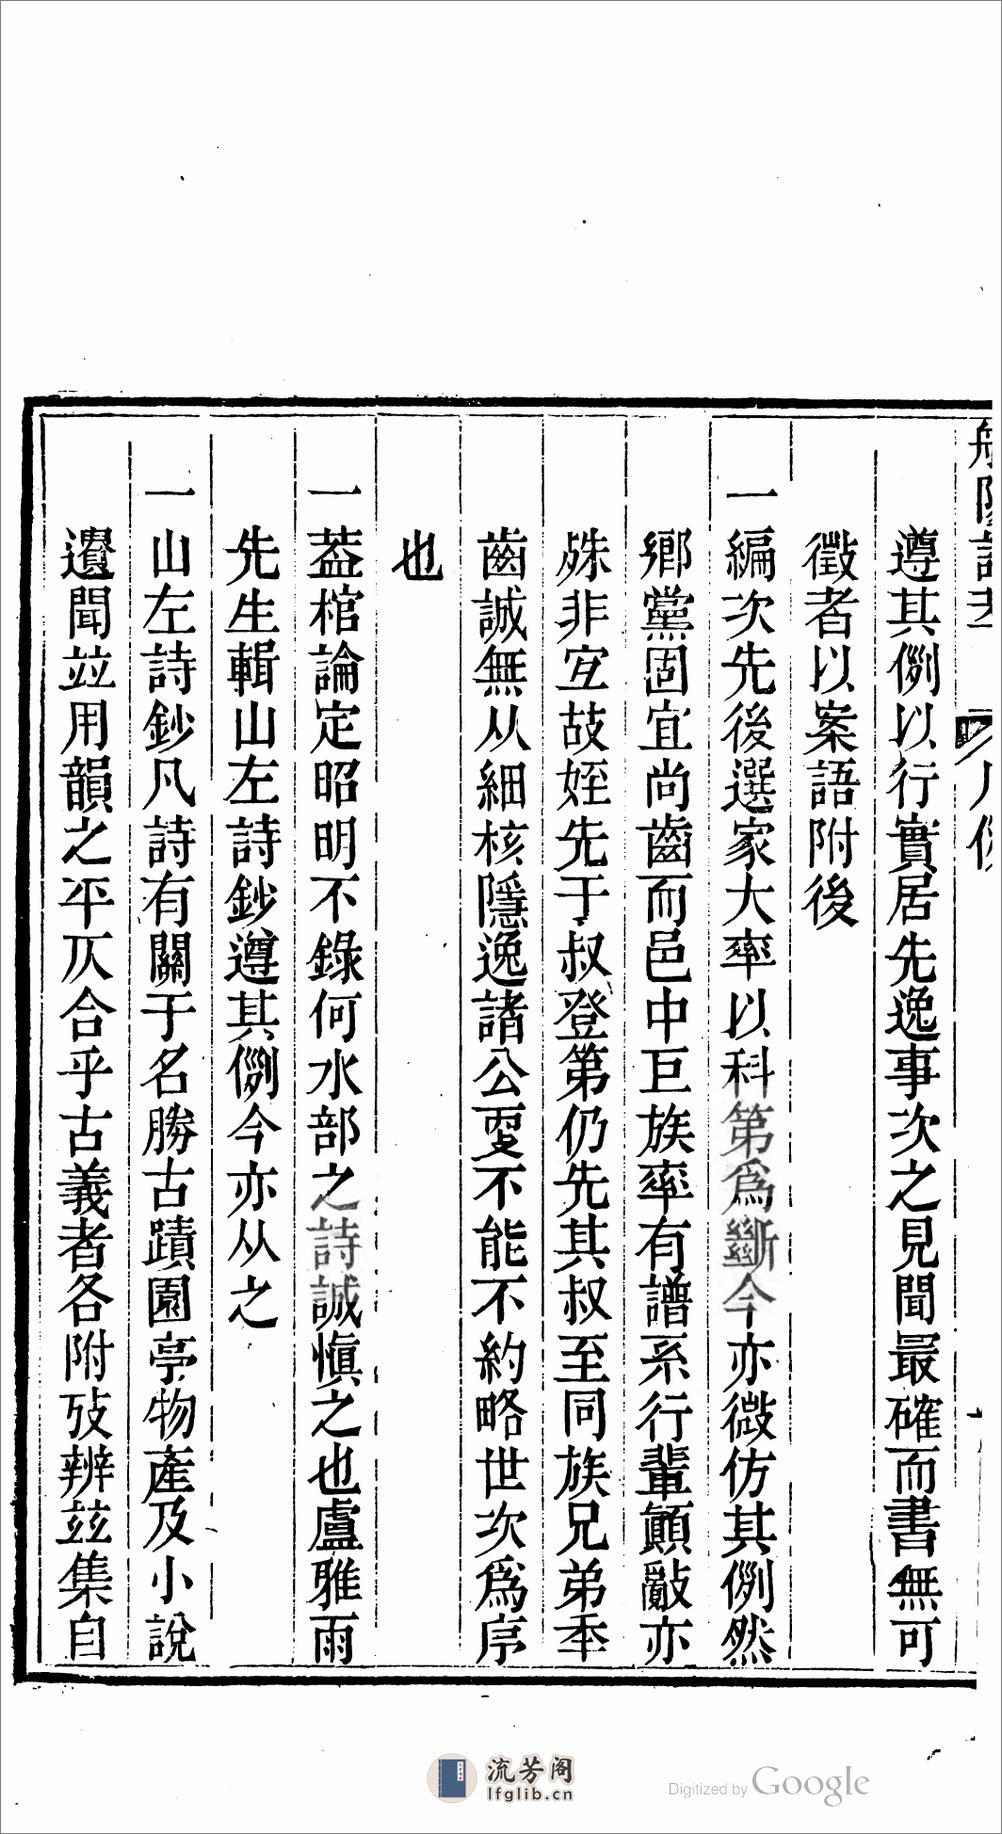 遵其例以行實居先逸事次之見聞最確而書無可
徵者以案語附後
一編次先後選家大率以科第爲斷今亦微仿其例然
鄉黨固宜尚齒而邑中巨族率有譜系行輩顚敽亦
殊非宐故姪先于叔登第仍先其叔至同族兄弟秊
齒誠無从細核隱逸諸公叓不能不約略世次爲序
也
一葢棺論定昭明不錄何水部之詩誠愼之也盧雅雨
先生輯山左詩鈔遵其例今亦从之
一山左詩鈔凡詩有關于名勝古蹟園亭物產及小說
遺聞竝用韻之平仄合乎古義者各附攷辨茲集自
流芳阁
lfglib.cn
Digitized by Google